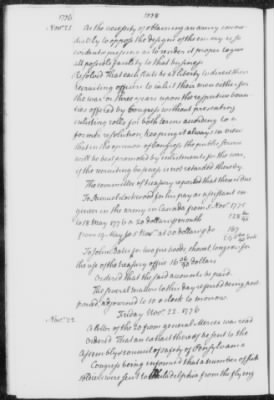 1776
Nov 21. As the necessity of obtaining an army imme
diately to oppose the designs of the enemy is so
evident & pressing as to render it proper to give
all possible facility to that business
Resolved That each state be at liberty to direct their
recruiting officers to inlist their men either for
the war or three years upon the respective boun
ties offered by Congress without presenting
enlisting rolls for both terms according to a
former resolution, keeping it always in view
that in the opinion of Congress the public service
will be best promoted by inlistments for the war,
if the recruiting business is not retarded thereby.
The committee of treasury reported that there is due
To Samuel Lockwood for his pay as assistant en
gineer in the army in Canada from 5 Nov. 1775
to 18 May 1776 @ 20 dollars month 128
from 19 May to 5 Novr at 30 dollars do 167
To John Bates for two fire hoods, shovel tongs &c for
the use of the treasury office 16 dollars
Ordered that the said accounts be paid.
The several matters to this day referred being post
poned, adjourned to 10 o clock to morrow.
Friday Nov. 22. 1776
Nov. 22. A letter of the 20 from general Mercer was read
Ordered That an extract thereof be sent to the
Assembly & council of safety of Pensylvania
Congress being informed that a number of sick
soldiers were sent to Philadelphia from the flying